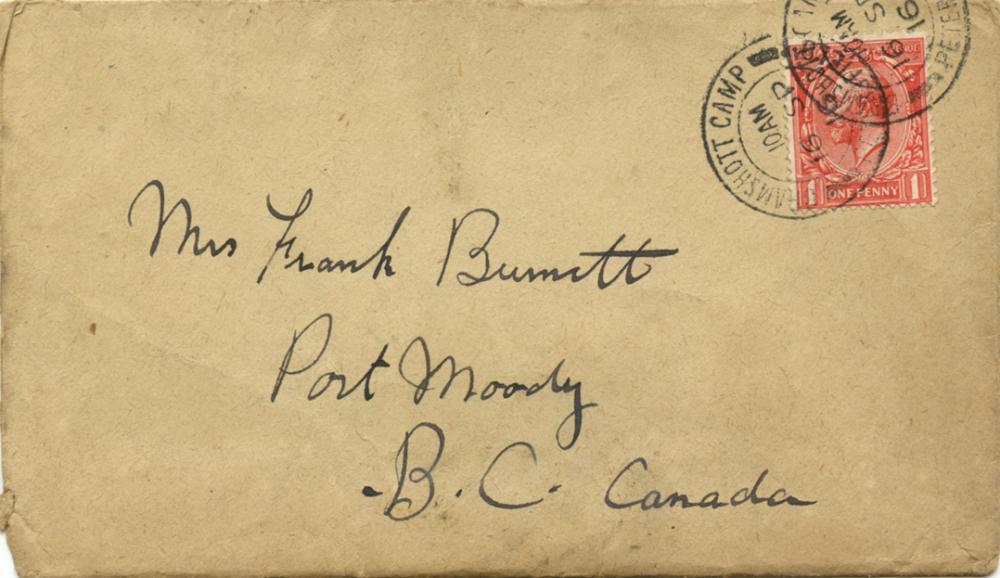 BRAMSHOTT CAMP
10 AM
16 SP
16
PETER
ONE PENNY
1 1
Mrs Frank Burnett
Port Moody
B. C. Canada